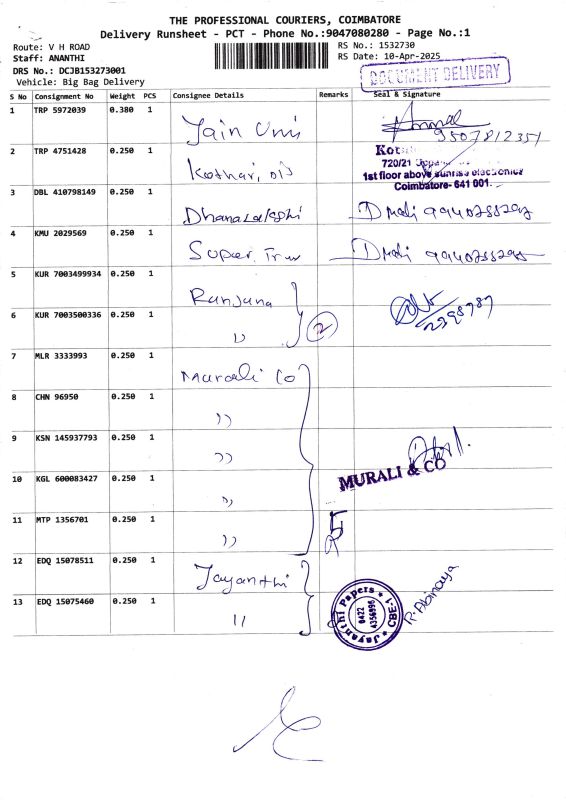 THE PROFESSIONAL COURIERS, COIMBATORE
Delivery Runsheet - PCT - Phone No.:9047080280 - Page No.:1
Route: V H ROAD
RS No.: 1532730
Staff: ANANTHI
RS Date: 10-Apr-2025
DRS No.: DCJB153273001
DOCUMENT DELIVERY
Vehicle: Big Bag Delivery
S No Consignment No Weight PCS Consignee Details Remarks Seal & Signature
1 TRP 5972039 0.380 1 Jain Uni
9507812351
2 TRP 4751428 0.250 1 Kothari, old
720/21
1st floor above sunrise electronics
Coimbatore- 641 001.
3 DBL 410798149 0.250 1 Dhanalakshi D Mali
4 KMU 2029569 0.250 1 Super D Mali
5 KUR 7003499934 0.250 1 Ranjana
6 KUR 7003500336 0.250 1 " 2
7 MLR 3333993 0.250 1 Murali Co
8 CHN 96950 0.250 1 "
9 KSN 145937793 0.250 1 "
10 KGL 600083427 0.250 1 " MURALI & CO
11 MTP 1356701 0.250 1 " 5
12 EDQ 15078511 0.250 1 Jayanthi
13 EDQ 15075460 0.250 1 "
Jayanthi Papers * CBE-1 *
0422
4356996
R. Abinaya